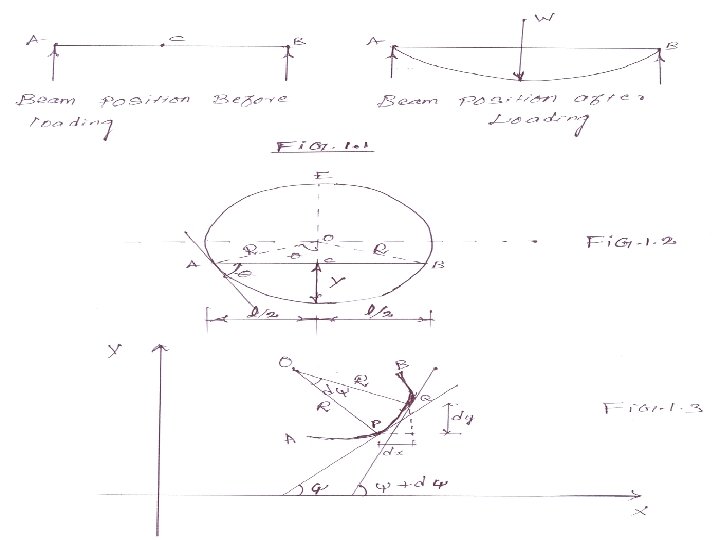 A C B
Beam Position Before
loading
W
A B
Beam Position after
Loading
FIG. 1.1
E
O
R R
θ
A C B
θ
y
l/2 l/2
FIG. 1.2
Y
O
dψ
R
R
B
Q
P
A
dy
dx
ψ
ψ + dψ
X
FIG. 1.3